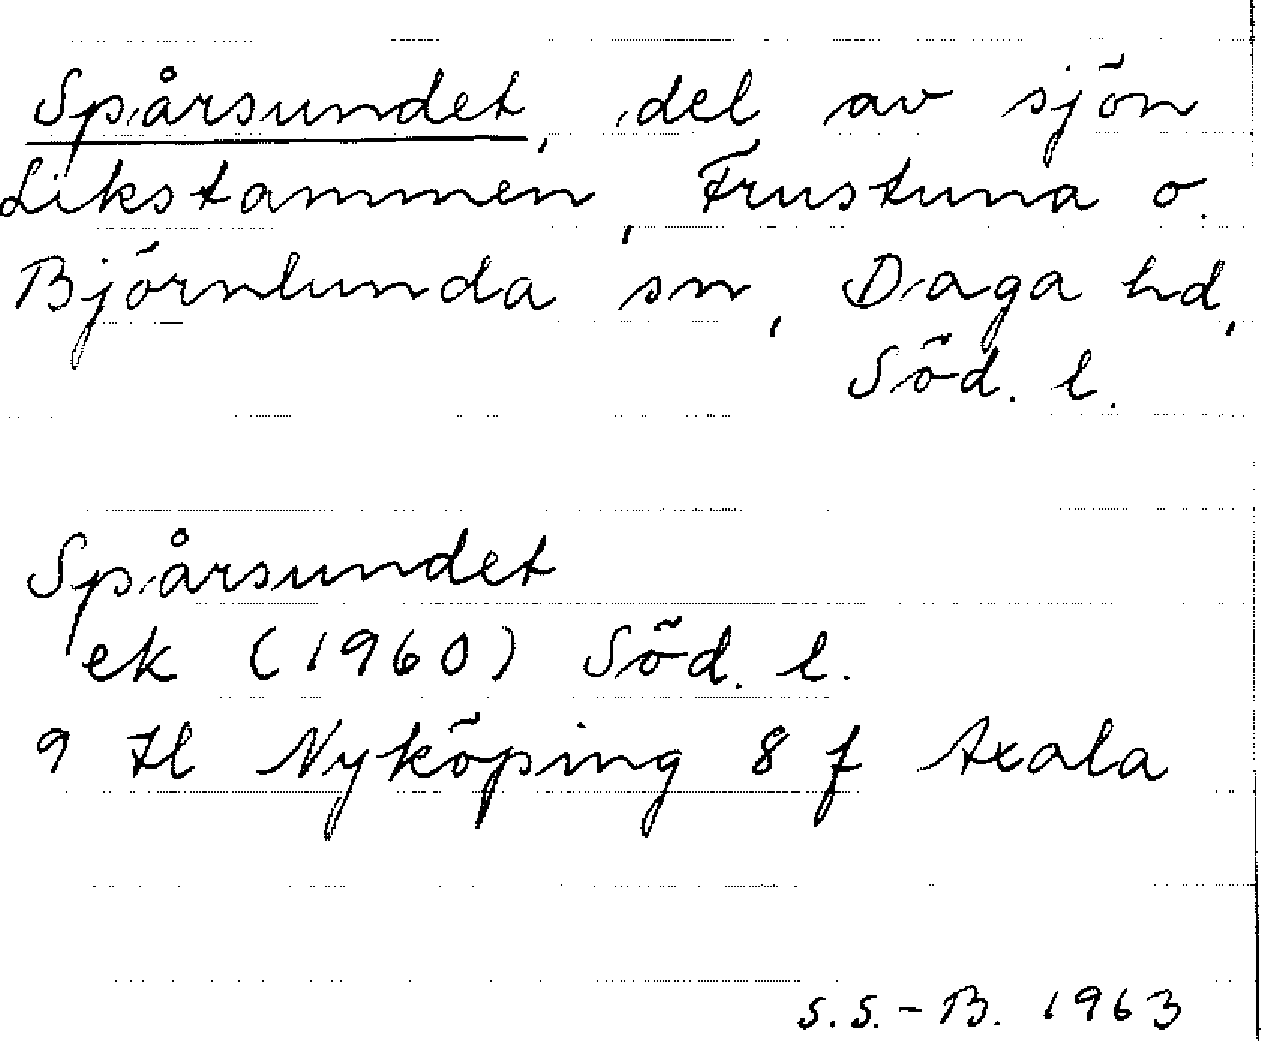 Spårsundet, del av sjön
Likstammen, Frustuna o.
Björnlunda sn, Daga hd,
Söd. l.
Spårsundet
ek (1960) Söd. l.
9 H Nyköping 8 f Axala
S.S.-B. 1963